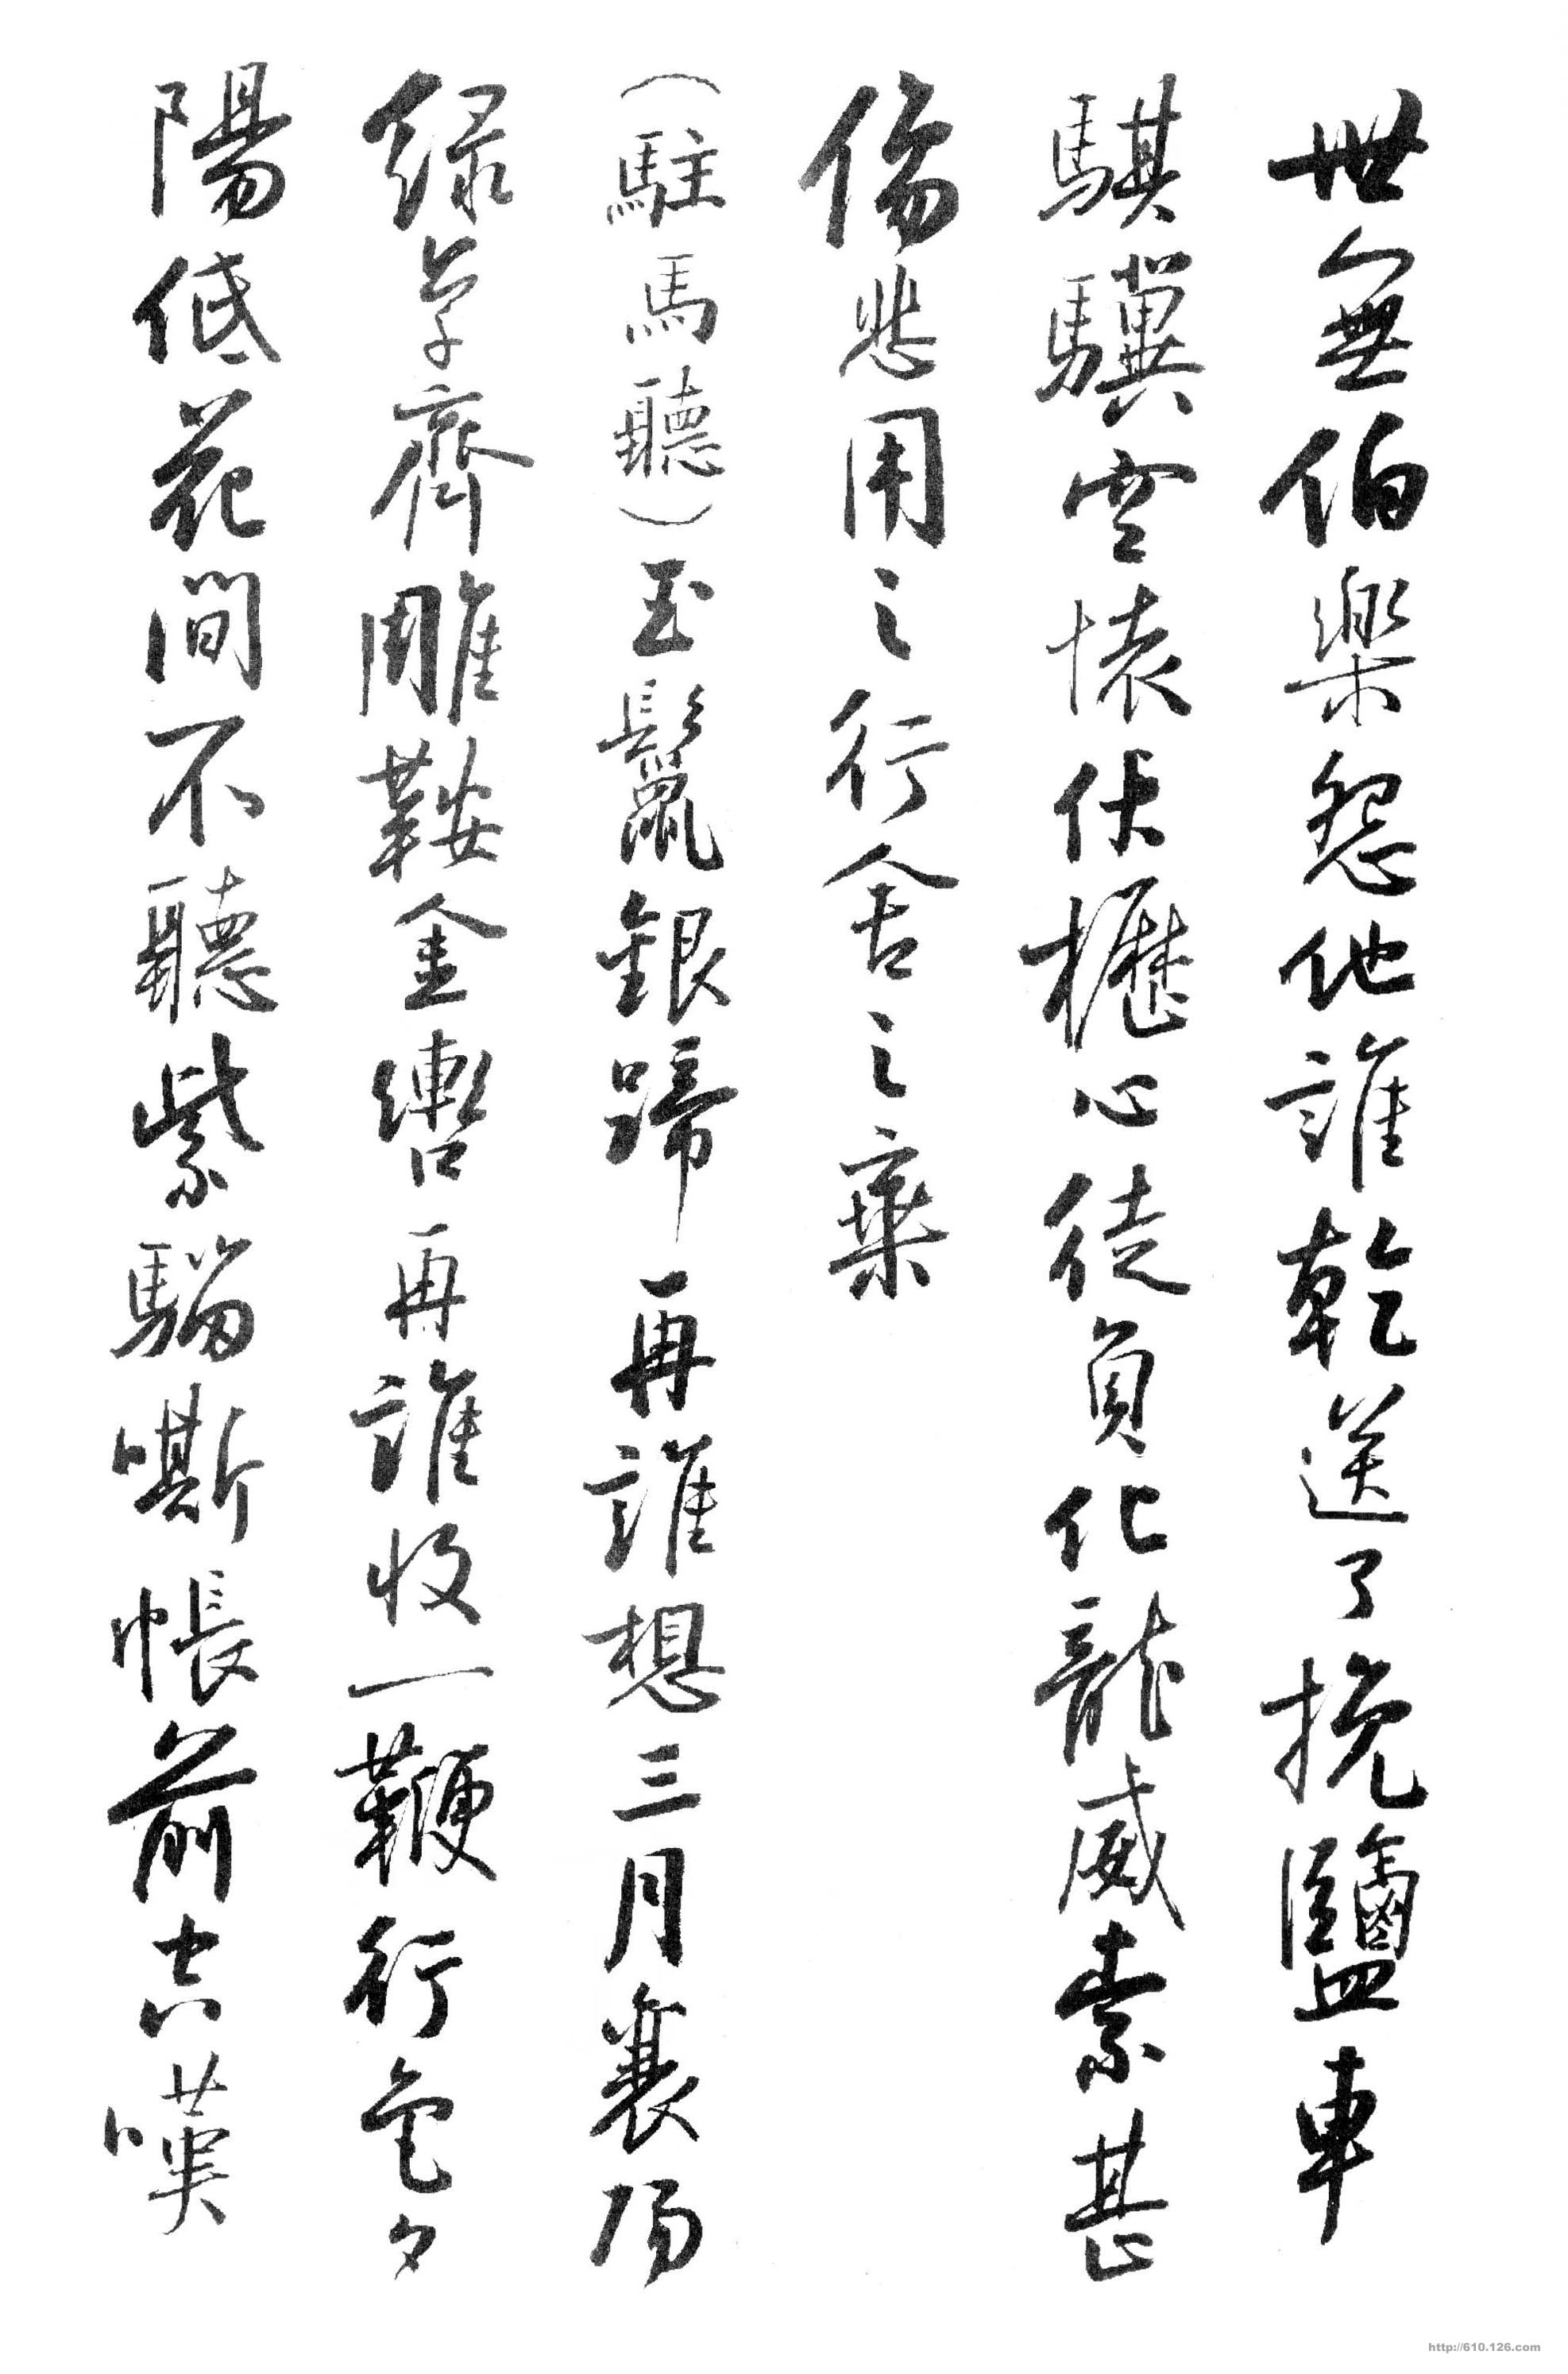 世無伯樂怨他誰乾送了挽鹽車
騏驥空懷伏櫪心徒負化龍威索甚
傷悲用之行舍之棄
（駐馬聽）玉鬣銀蹄再誰想三月襄陽
綠草齊雕鞍金轡再誰收一鞭行色夕
陽低花間不聽紫騮嘶帳前空嘆
http://610.126.com